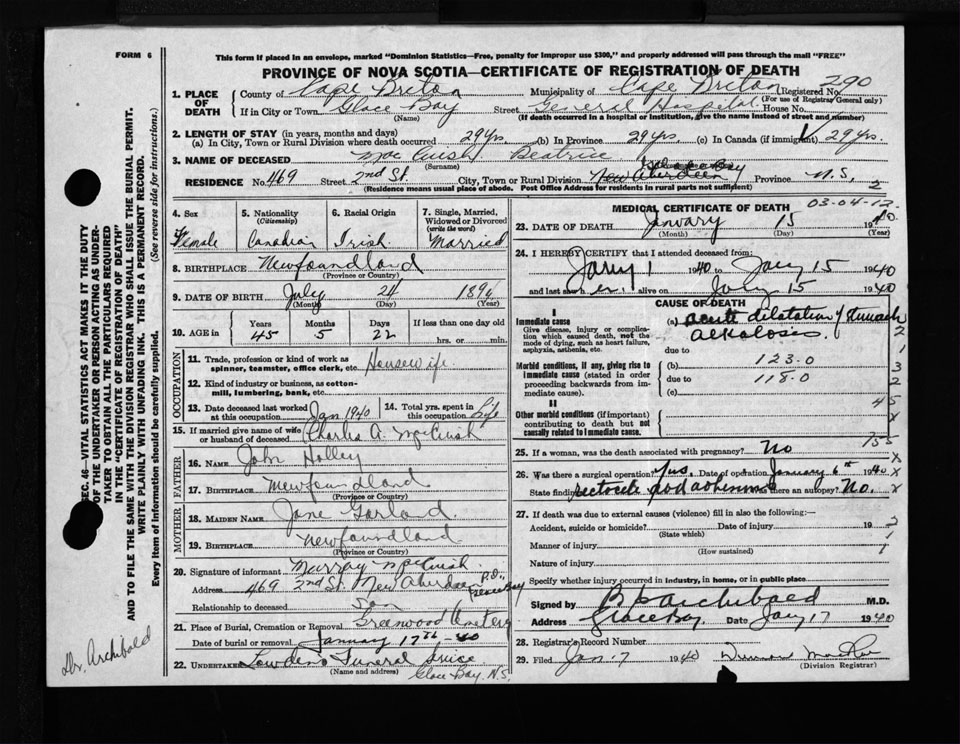 FORM 6
This form if placed in an envelope, marked "Dominion Statistics—Free, penalty for improper use $300," and properly addressed will pass through the mail "FREE"
PROVINCE OF NOVA SCOTIA—CERTIFICATE OF REGISTRATION OF DEATH
SEC. 46—VITAL STATISTICS ACT MAKES IT THE DUTY
OF THE UNDERTAKER OR PERSON ACTING AS UNDER-
TAKER TO OBTAIN ALL THE PARTICULARS REQUIRED
IN THE "CERTIFICATE OF REGISTRATION OF DEATH"
AND TO FILE THE SAME WITH THE DIVISION REGISTRAR WHO SHALL ISSUE THE BURIAL PERMIT.
WRITE PLAINLY WITH UNFADING INK. THIS IS A PERMANENT RECORD.
Every item of information should be carefully supplied. (See reverse side for instructions.)
Dr. Archibald
1. PLACE OF DEATH
County of Cape Breton Municipality of Cape Breton Registered No. 290
(For use of Registrar General only)
If in City or Town Glace Bay Street General Hospital House No.
(Name) (If death occurred in a hospital or institution, give the name instead of street and number)
2. LENGTH OF STAY (in years, months and days)
(a) In City, Town or Rural Division where death occurred 29 yrs. (b) In Province 29 yrs. (c) In Canada (if immigrant) 29 yrs.
3. NAME OF DECEASED Mac Cuish Beatrice
(Surname)
RESIDENCE No. 469 Street 2nd St. City, Town or Rural Division New Aberdeen Province N.S. 2
(Residence means usual place of abode. Post Office Address for residents in rural parts not sufficient)
4. Sex Female
5. Nationality (Citizenship) Canadian
6. Racial Origin Irish
7. Single, Married, Widowed or Divorced (write the word) Married
8. BIRTHPLACE Newfoundland
(Province or Country)
9. DATE OF BIRTH July 24 1894
(Month) (Day) (Year)
10. AGE in Years 45 Months 5 Days 22 If less than one day old hrs. or min.
OCCUPATION
11. Trade, profession or kind of work as spinner, teamster, office clerk, etc. Housewife
12. Kind of industry or business, as cotton-mill, lumbering, bank, etc.
13. Date deceased last worked at this occupation Jan 1940
14. Total yrs. spent in this occupation Life
15. If married give name of wife or husband of deceased Charles A. McCuish
FATHER
16. Name John Holley
17. Birthplace Newfoundland
(Province or Country)
MOTHER
18. MAIDEN NAME Jane Garlad
19. BIRTHPLACE Newfoundland
(Province or Country)
20. Signature of informant Murray McCuish
Address 469 2nd St. New Aberdeen P.O.
Relationship to deceased Son
21. Place of Burial, Cremation or Removal Greenwood Cemetery
Date of burial or removal January 17th - 40
22. UNDERTAKER Lowden's Funeral Service
(Name and address) Glace Bay, N.S.
MEDICAL CERTIFICATE OF DEATH 03-04-12
23. DATE OF DEATH January 15 1940
(Month) (Day) (Year)
24. I HEREBY CERTIFY that I attended deceased from:
Jany 1 1940 to Jany 15 1940
and last saw her alive on Jany 15 1940
CAUSE OF DEATH
I
Immediate cause
Give disease, injury or complication which caused death, not the mode of dying, such as heart failure, asphyxia, asthenia, etc.
(a) acute dilatation of stomach
alkalosis
due to
Morbid conditions, if any, giving rise to immediate cause (stated in order proceeding backwards from immediate cause)
(b) 123.0
due to 118.0
(c)
II
Other morbid conditions (if important) contributing to death but not causally related to immediate cause.
2
1
3
2
45
x
25. If a woman, was the death associated with pregnancy? No
26. Was there a surgical operation? Yes. Date of operation January 6th 1940
State findings rectocele Was there an autopsy? No.
27. If death was due to external causes (violence) fill in also the following:—
Accident, suicide or homicide? Date of injury 19 2
(State which)
Manner of injury 1
(How sustained)
Nature of injury 1
Specify whether injury occurred in industry, in home, or in public place
Signed by Archibald M.D.
Address Glace Bay. Date Jany 17 1940
28. Registrar's Record Number
29. Filed Jan 17 1940
(Division Registrar)